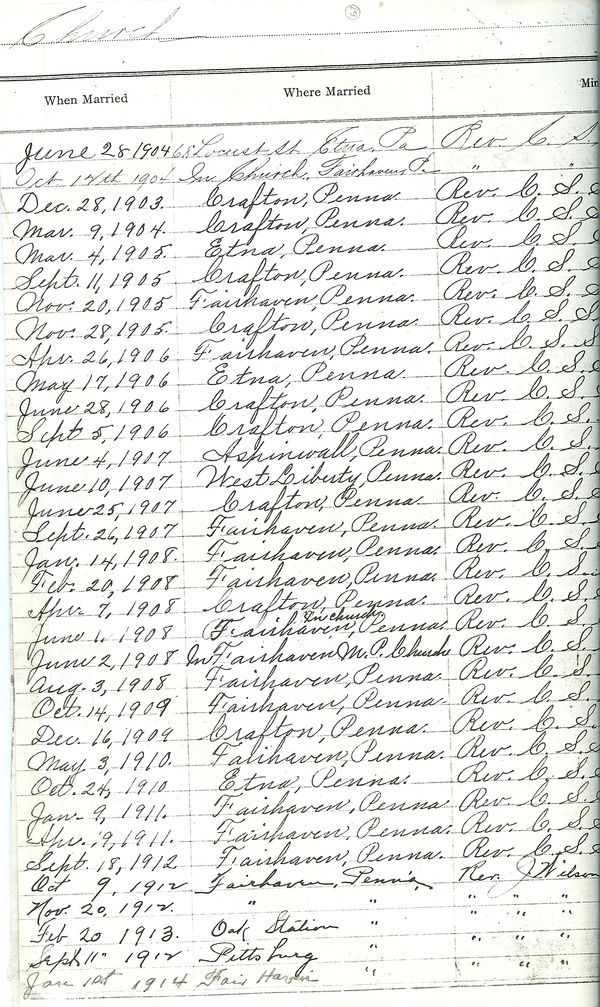 19
Church
When Married Where Married Min
June 28 1904 68 Locust St. Etna, Pa Rev. C. S.
Oct 12th 1904 In Church, Fairhaven, P. " "
Dec. 28, 1903. Crafton, Penna. Rev. C. S.
Mar. 9, 1904. Crafton, Penna. Rev. C. S.
Mar. 4, 1905. Etna, Penna. Rev. C. S.
Sept. 11, 1905 Crafton, Penna. Rev. C. S.
Nov. 20, 1905 Fairhaven, Penna. Rev. C. S.
Nov. 28, 1905. Crafton, Penna. Rev. C. S.
Apr. 26, 1906 Fairhaven, Penna. Rev. C. S.
May 17, 1906 Etna, Penna. Rev. C. S.
June 28, 1906 Crafton, Penna. Rev. C. S.
Sept. 5, 1906 Crafton, Penna. Rev. C. S.
June 4, 1907 Aspinwall, Penna. Rev. C. S.
June 10, 1907 West Liberty, Penna. Rev. C. S.
June 25, 1907 Crafton, Penna. Rev. C. S.
Sept. 26, 1907 Fairhaven, Penna. Rev. C. S.
Jan. 14, 1908. Fairhaven, Penna. Rev. C. S.
Feb. 20, 1908 Fairhaven, Penna. Rev. C. S.
Apr. 7, 1908 Crafton, Penna. Rev. C. S.
June 1. 1908 Fairhaven, In church Penna. Rev. C. S.
June 2, 1908 In Fairhaven M. P. Church Rev. C. S.
Aug. 3, 1908 Fairhaven, Penna. Rev. C. S.
Oct. 14, 1909 Fairhaven, Penna. Rev. C. S.
Dec. 16, 1909 Crafton, Penna. Rev. C. S.
May 3, 1910. Fairhaven, Penna. Rev. C. S.
Oct. 24, 1910 Etna, Penna. Rev. C. S.
Jan. 9, 1911. Fairhaven, Penna. Rev. C. S.
Apr. 19, 1911. Fairhaven, Penna. Rev. C. S.
Sept. 18, 1912 Fairhaven, Penna. Rev. C. S.
Oct 9, 1912 Fairhaven, Penna, Rev. J Wilson
Nov. 20, 1912. " " " " "
Feb 20 1913. Oak Station " " " "
Sept 11" 1912 Pittsburg " " " "
Jan 1st 1914 Fair Haven " " " "